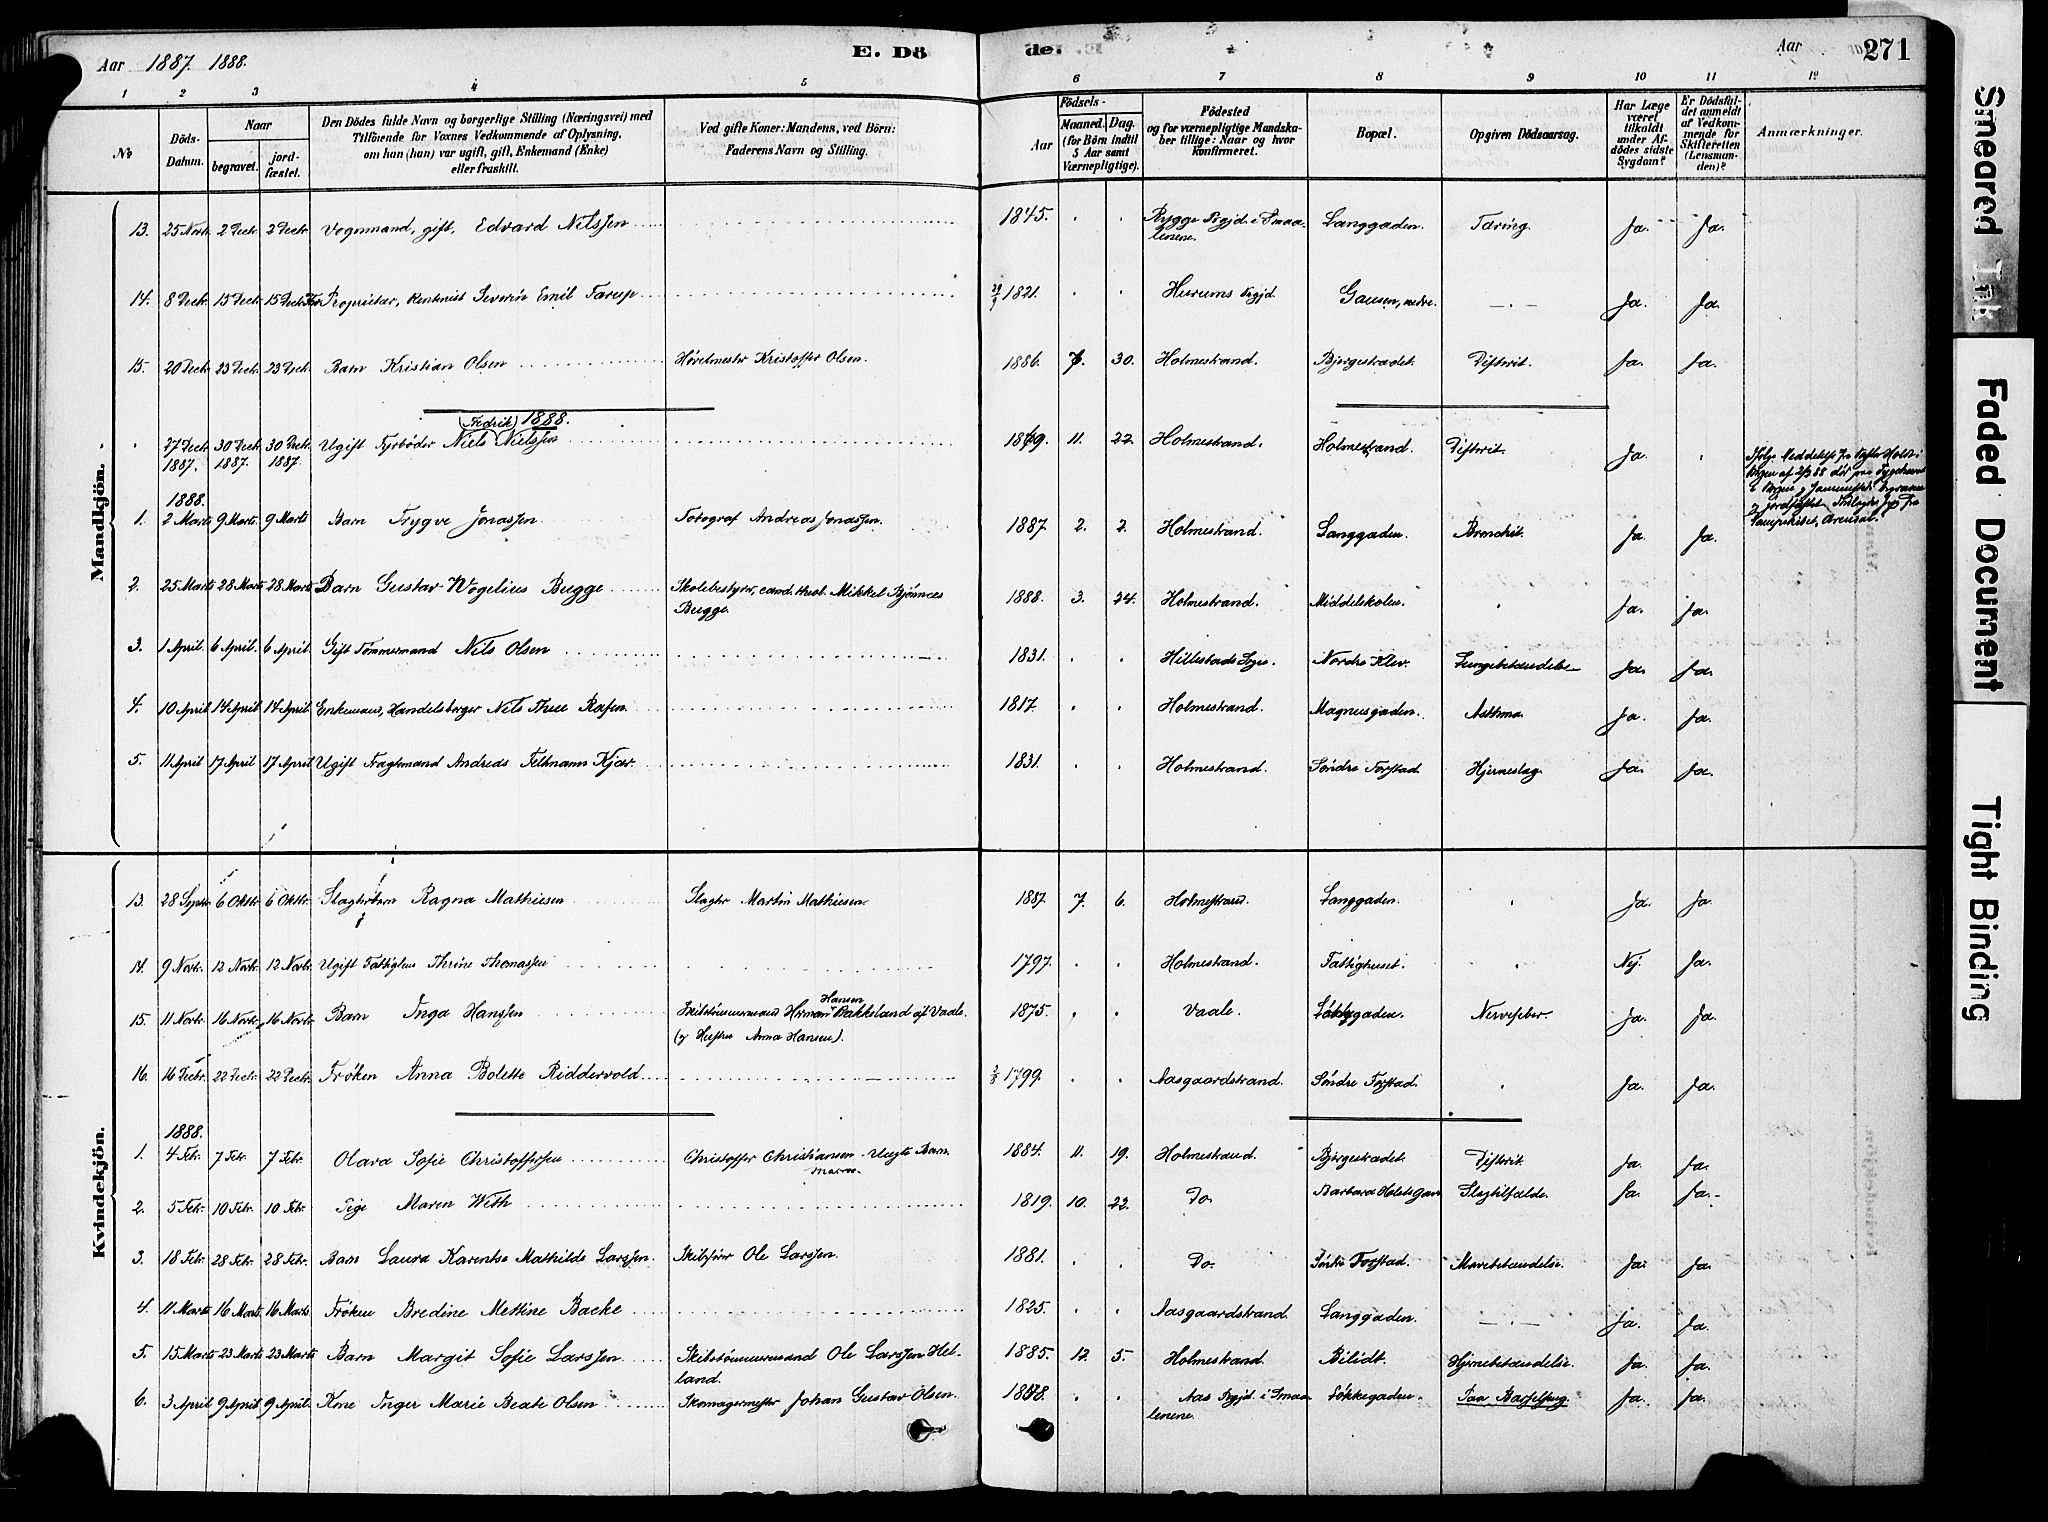 Aar 1887. 1888.
E. Dö
de. E.
Aar
271
1 2 3 4 5 6 7 8 9 10 11 12
No
Döds-Datum.
Naar
begravet.
jord-fæstet.
Den Dödes fulde Navn og borgerlige Stilling (Næringsvei) med
Tilföiende for Voxnes Vedkommende af Oplysning,
om han (hun) var ugift, gift, Enkemand (Enke)
eller fraskilt.
Ved gifte Koner: Mandens, ved Börn:
Faderens Navn og Stilling.
Födsels-
Aar
Maaned. Dag.
(for Börn indtil
5 Aar samt
Værnepligtige).
Födested
og for værnepligtige Mandska-
ber tillige: Naar og hvor
konfirmeret.
Bopæl.
Opgiven Dödsaarsag.
Har Læge
været
tilkaldt
under Af-
dödes sidste
Sygdom?
Er Dödsfal-
det anmeldt
af Vedkom-
mende for
Skifteretten
(Lensman-
den)?
Anmærkninger.
Mandkjön.
13. 25 Novb. 2 Decbr. 2 Decbr. Vognmand, gift, Edvard Nilssen 1845. Rygge Prgjd. i Smaa-
lenene. Langgaden. Tæring. Ja. Ja.
14. 8 Decbr. 15 Decbr. 15 Decbr. Proprietær, Rentenist Severin Emil Farup 1821. Hurums Prgjd. Gausen, nedre. Ja. Ja.
15. 20 Decbr. 23 Decbr. 23 Decbr. Barn Kristian Olsen Kristoffer Olsen. 1886 7. 30. Holmestrand. Bjergestrædet. Difterit. Ja. Ja.
1888.
27 Decbr. 1887. 30 Decbr. 1887. 30 Decbr. 1887. Ugift Fyrbøder (Fredrik) Niels Nielssen 1869. 11. 22. Holmestrand. Holmestrand. Difterit. Ja.
1888.
1. 2 Marts 9 Marts. 9 Marts Barn Trygve Jonassen Fotograf Andreas Jonassen. 1887 2. 2. Holmestrand. Langgaden. Bronchit. Ja. Ja.
2. 25 Marts 28 Marts 28 Marts Barn Gustav Wogelius Bugge Skolebestyrer, cand. theol. Mikkel Bjønnes
Bugge. 1888. 3. 24. Holmestrand. Middelskolen. Ja. Ja.
3. 1 April. 6 April. 6 April. Gift Tømmermand Nils Olsen 1831. Hillestads Sogn. Nordre Klev. Lungebetændelse Ja. Ja.
4. 10 April 14 April. 14 April. Enkemand, Handelsborger Nils Thue Rafen 1817. Holmestrand. Magnusgaden. Asthma. Ja. Ja.
5. 11 April 17 April 17 April Ugift Fragtmand Andreas Feltmann Kjær. 1831. Holmestrand. Søndre Forstad. Hjerneslag. Ja. Ja.
Kvindekjön.
13. 28 Septbr. 6 Oktbr. 6 Oktbr. Slagterbarn Ragna Mathiesen Slagter Martin Mathiesen. 1887. 7. 6. Holmestrand. Langgaden. Ja. Ja.
14. 9 Novbr. 12 Novbr. 12 Novbr. Ugift Fattiglem Thrine Thomassen 1797. Holmestrand. Fattighuset. Nej. Ja.
15. 11 Novbr. 16 Novbr. 16 Novbr. Barn Inga Hanssen Skibstømmermand Herman Hansen Bakkeland af Vaale.
(g Hustru Anna Hansen). 1875. Vaale. Nervefeber. Ja. Ja.
16. 16 Decbr. 22 Decbr. 22 Decbr. Frøken Anna Bolette Riddervold 1799. Aasgaardstrand. Søndre Forstad. Ja. Ja.
1888.
1. 4 Febr. 7 Febr. 7 Febr. Olava Sofie Christoffersen Christoffer Christiansen Uægte Barn 1884. 11. 19. Holmestrand. Bjergestrædet. Difterit. Ja. Ja.
2. 5 Febr. 10 Febr. 10 Febr. Pige Maren With 1819. 10. 22. Do. Barbara Holstsgan Slagtilfælde. Ja. Ja.
3. 18 Febr. 28 Febr. 28 Febr. Barn Laura Karentse Mathilde Larssen Skibsfører Ole Larssen. 1881. Do. Søndre Forstad. Mavebetændelse. Ja. Ja.
4. 11 Marts 16 Marts. 16 Marts. Frøken Bredine Mettine Backe 1825. Aasgaardstrand. Langgaden. Ja. Ja.
5. 15 Marts 23 Marts 23 Marts Barn Margit Sofie Larssen Skibstømmermand Ole Larssen Hel-
land. 1885. 12. 5. Holmestrand. Bilidt. Hjernebetændelse. Ja. Ja.
6. 3 April 9 April 9 April. Kone Inger Marie Beate Olsen Skomagermester Johan Gustav Olsen. 1858. Aas Prgjd. i Smaa-
lenene. Løkkegaden. Paa Barselseng. Ja. Ja.
Smeared Ink
Faded Document
Tight Binding